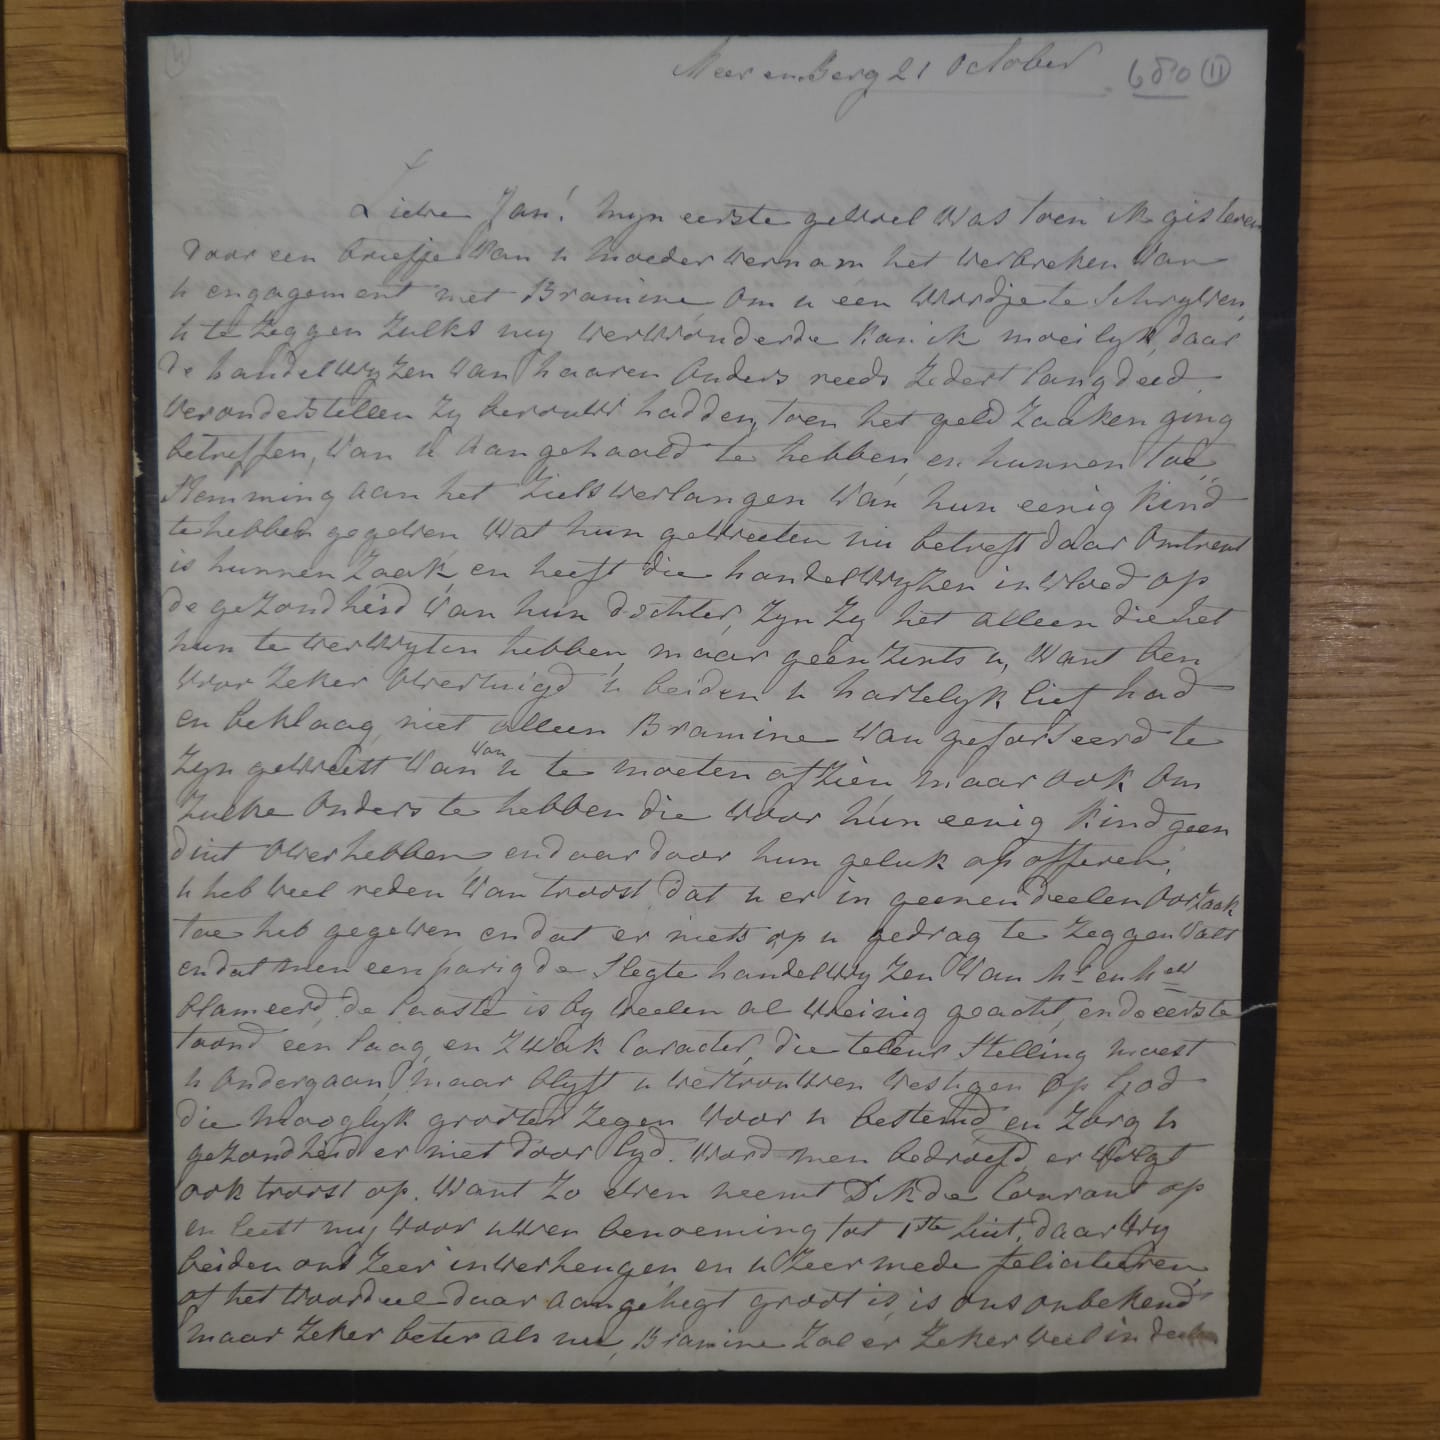 Meerenberg 21 October 680 11
Lieve Jan! Myn eerste gevoel was toen ik gisteren
door een briefje van u moeder vernam het verbreken van
u engagement met Bramine, om u een woordje te schryven,
u te zeggen zulks my verwonderde kan ik moeilyk, daar
de handelwyzen van haaren Ouders reeds zedert lang deed
veronderstellen zy berouw hadden, toen het geld zaaken ging
betreffen, van u aangehaald te hebben en hunnen toe
stemming aan het zielsverlangen van hun eenig kind
te hebben gegeven, wat hun geweeten nu betreft daar omtrent
is hunnen zaak, en heeft die handelwyzen invloed op
de gezondheid van hun dochter, zyn zy het alleen die het
hun te verwyten hebben, maar geen zints u, want ben
voor zeker overtuigd u beiden u hartelyk lief had
en beklaag, niet alleen Bramine van geforseerd te
zyn geweest van van u te moeten afzien maar ook om
zulke Ouders te hebben die voor hun eenig kind geen
dint over hebben, en daar door hun geluk op offeren,
u heb veel reden van troost, dat u er in geenen deelen oorzaak
toe heb gegeven, en dat er niets op u gedrag te zeggen valt
en dat men eenparig de slegte handelwyzen van hr en
blameerd, de laaste is by veelen al weinig geacht, en de eerste
toond een laag, en zwak Caracter, die teleur stelling moest
u ondergaan, maar blyft u vertrouwen vestigen op God
die mooglyk grooter zegen voor u bestemd, en zorg u
gezondheid er niet door lyd. Word men bedroefd, er volgt
ook troost op. Want zo even neemt D. K de Courant op
en leest my voor uwen benoeming tot 1ste Luit, daar wy
beiden ons zeer in verheugen, en u zeer mede feliciteeren,
of het voordeel daar aangehegt groot is, is ons onbekend
maar zeker beter als nu, Bramine zal er zeker veel in